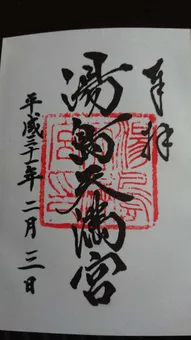 奉拝
湯島天満宮
平成三十一年二月三日